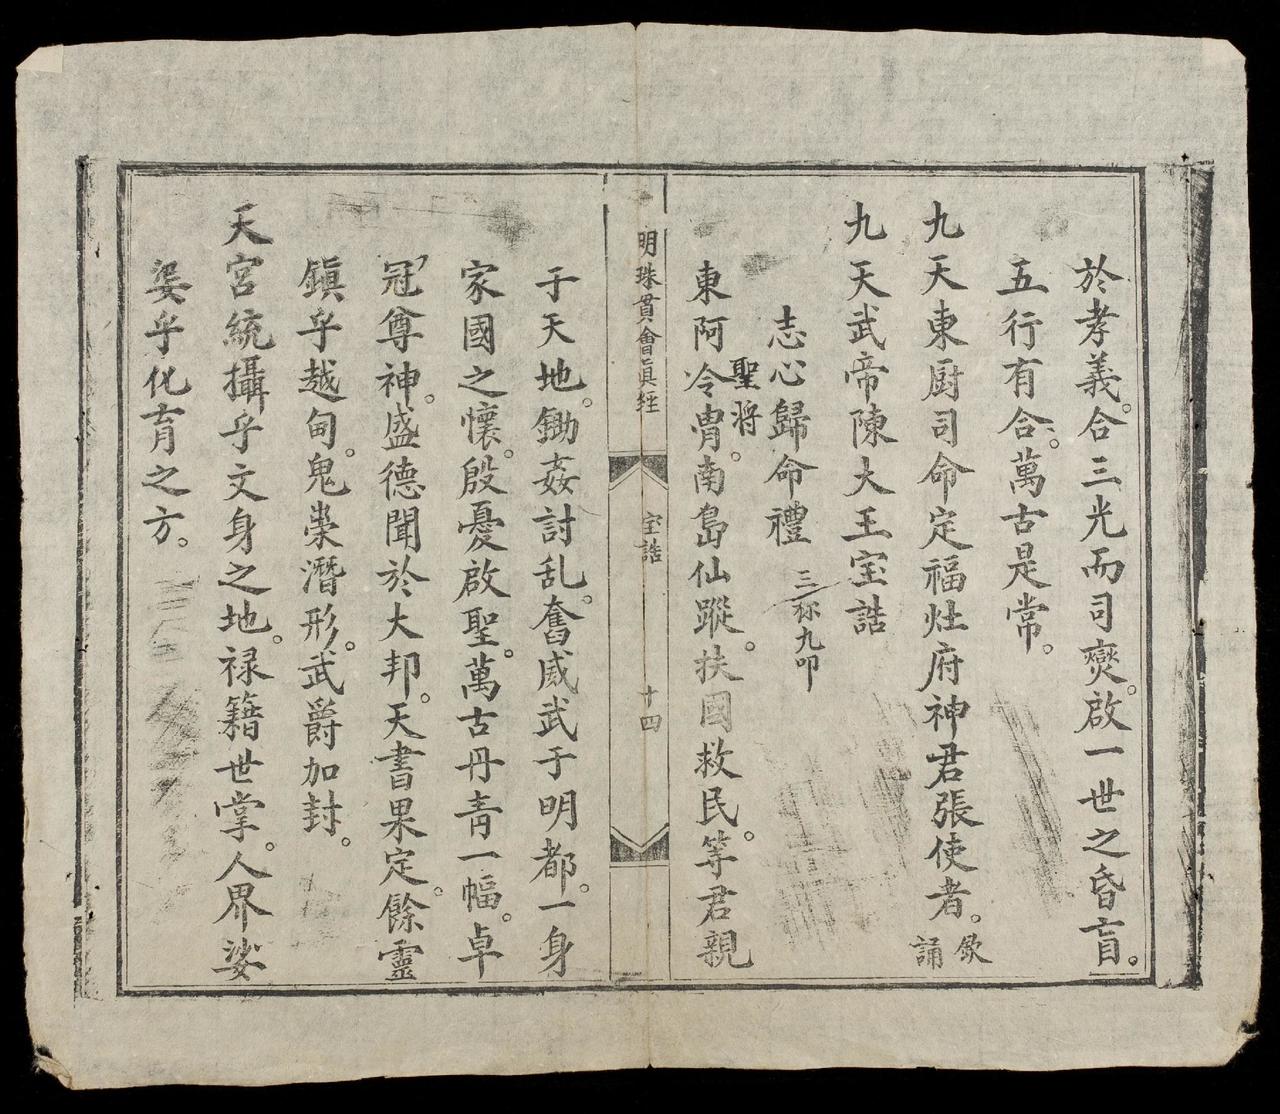 於孝義。合三光而司爕。啟一世之昏盲。
五行有合。萬古是常。
九天東厨司命定福灶府神君張使者。欽誦
九天武帝陳大王宝誥
志心歸命禮 三称九叩
聖将
東阿冷胄。南島仙蹤。扶國救民。等君親
明珠貫會真經 宝誥 十四
于天地。鋤姦討乱。奮威武于明都。一身
家國之懷。殷憂啟聖。萬古丹青一幅。卓
冠尊神。盛德聞於大邦。天書果定。餘靈
鎮乎越甸。鬼祟潛形。武爵加封。
天宮統攝乎文身之地。禄籍世掌。人界娑
娑乎化育之方。